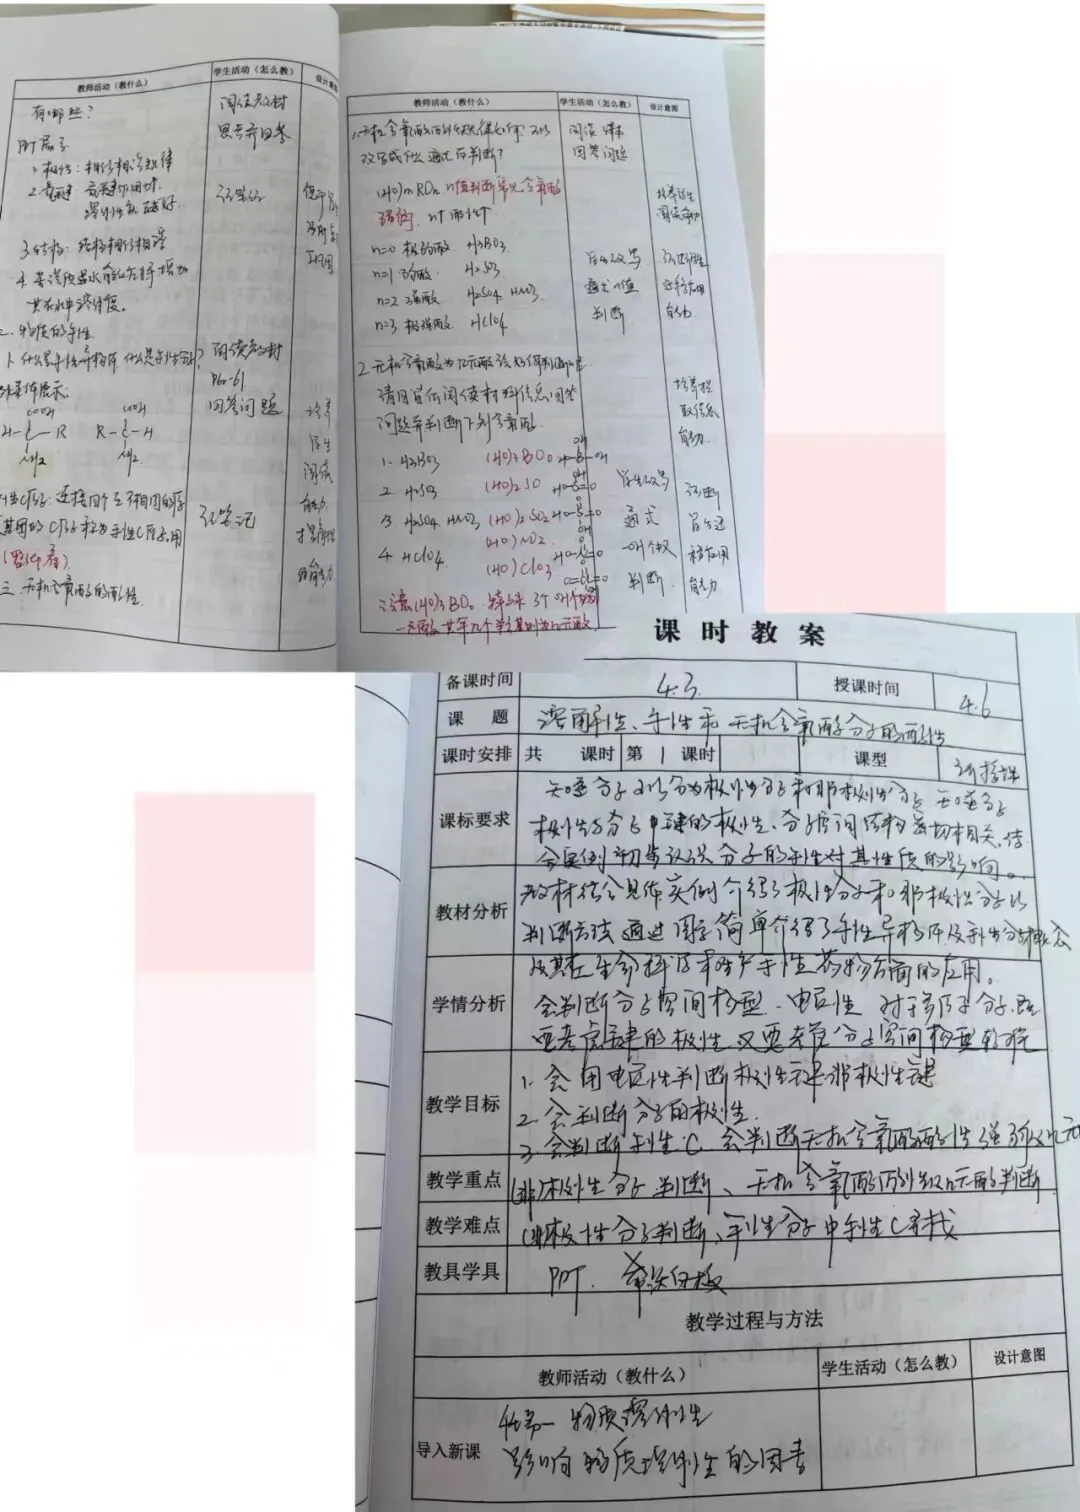 教师活动（教什么）
学生活动（怎么教）
有哪些？
阅读教材
思考并回答
1.极性：相似相溶规律
2.氢键：氢键作用越
溶解性越好.
记笔记
3.结构：结构相似相溶
4.
其在水中溶解度。
二.物质的手性
1.什么是手性异构体.什么是手性分子？
阅读教材
P60-61
回答问题
展示：
COOH COOH
H-C-R R-C-H
NH2 NH2.
培养
学生
阅读
能力.
手性C原子：连接四个互不相同的原子
基团的C原子称为手性C原子.用
记笔记
三.无机含氧酸的酸性
教师活动（教什么） 学生活动（怎么教） 设计意图
1.无机含氧酸的酸性强弱如何？可以
改写成什么通式后判断？
阅读课本
回答问题
(HO)mROn n值判断常见含氧酸
强弱. n↑酸性↑
培养学生
阅读能力
n=0 极弱酸 H3BO3
n=1 弱酸 H2SO3
n=2 强酸 H2SO4 HNO3
n=3 极强酸 HClO4
学生改写
通式n值
判断
迁移应用
能力.
2.无机含氧酸为几元酸该如何判断呢
请同学们阅读材料信息回答
问题并判断下列含氧酸
培养提
取信息
能力.
1. H3BO3 (HO)3BO0
2. H2SO3 (HO)2SO
3. H2SO4 HNO3 (HO)2SO2
(HO)NO2
4. HClO4 (HO)ClO3
学生改写
通式
-OH个数
判断
诊断
学生迁
移应用
能力.
注意(HO)3BO0 特殊 3个OH但为
一元酸 其余几个羟基则为几元酸
课时教案
备课时间 4.3. 授课时间 4.6
课 题 溶解性、手性和无机含氧酸分子的酸性
课时安排 共 课时 第 1 课时 课型 新授课
课标要求 知道分子可以分为极性分子和非极性分子 知道分子
极性与分子中键的极性、分子空间结构密切相关.结
合实例初步认识分子的手性对其性质的影响。
教材分析 教材结合具体实例介绍了极性分子和非极性分子以
判断方法 通过图示简单介绍了手性异构体及手性分子概念
及其在生命科学和生产手性药物方面的应用。
学情分析 会判断分子空间构型、电负性 对于多原子分子.既
要考虑键的极性又要考虑分子空间构型较难
教学目标 1.会用电负性判断极性键非极性键
2.会判断分子的极性.
3.会判断手性C.会判断无机含氧酸酸性强弱及几元
教学重点 (非)极性分子判断、无机含氧酸酸性强弱及几元酸的判断
教学难点 (非)极性分子判断、手性分子中手性C寻找
教具学具 PPT.
教学过程与方法
教师活动（教什么） 学生活动（怎么教） 设计意图
导入新课 一 物质溶解性
影响物质溶解性的因素